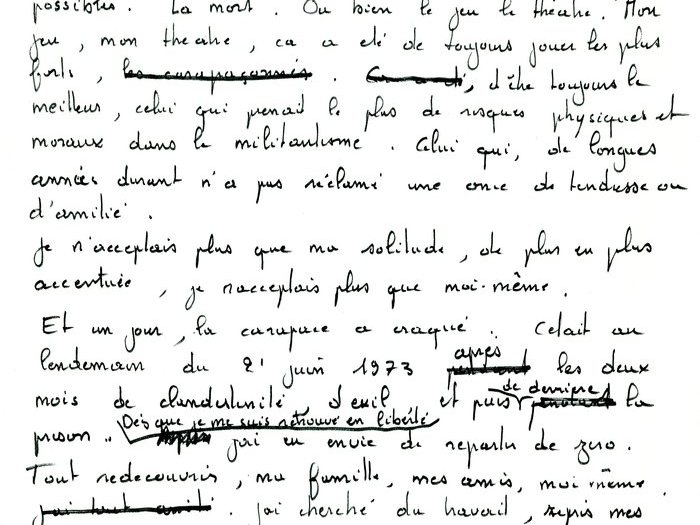 possibles. La mort. Ou bien le jeu le théatre. Mon
jeu, mon theatre, ca a été de toujours jouer les plus
forts, les carapaçonnés. Ca a été, d'être toujours le
meilleur, celui qui prenait le plus de risques physiques et
moraux dans le militantisme. Celui qui, de longues
années durant n'a pas réclamé une once de tendresse ou
d'amitié.
Je n'acceptais plus que ma solitude, de plus en plus
accentuée, je n'acceptais plus que moi-même.
Et un jour, la carapace a craqué. Cetait au
après
lendemain du 21 juin 1973 les deux
de derrière
mois de clandestinité, d'exil et puis la
Dès que je me suis retrouvé en liberté
prison. j'ai eu envie de repartir de zero.
Tout redecouvrir, ma famille, mes amis, moi-même.
j'ai tout j'ai cherché du travail, repris mes